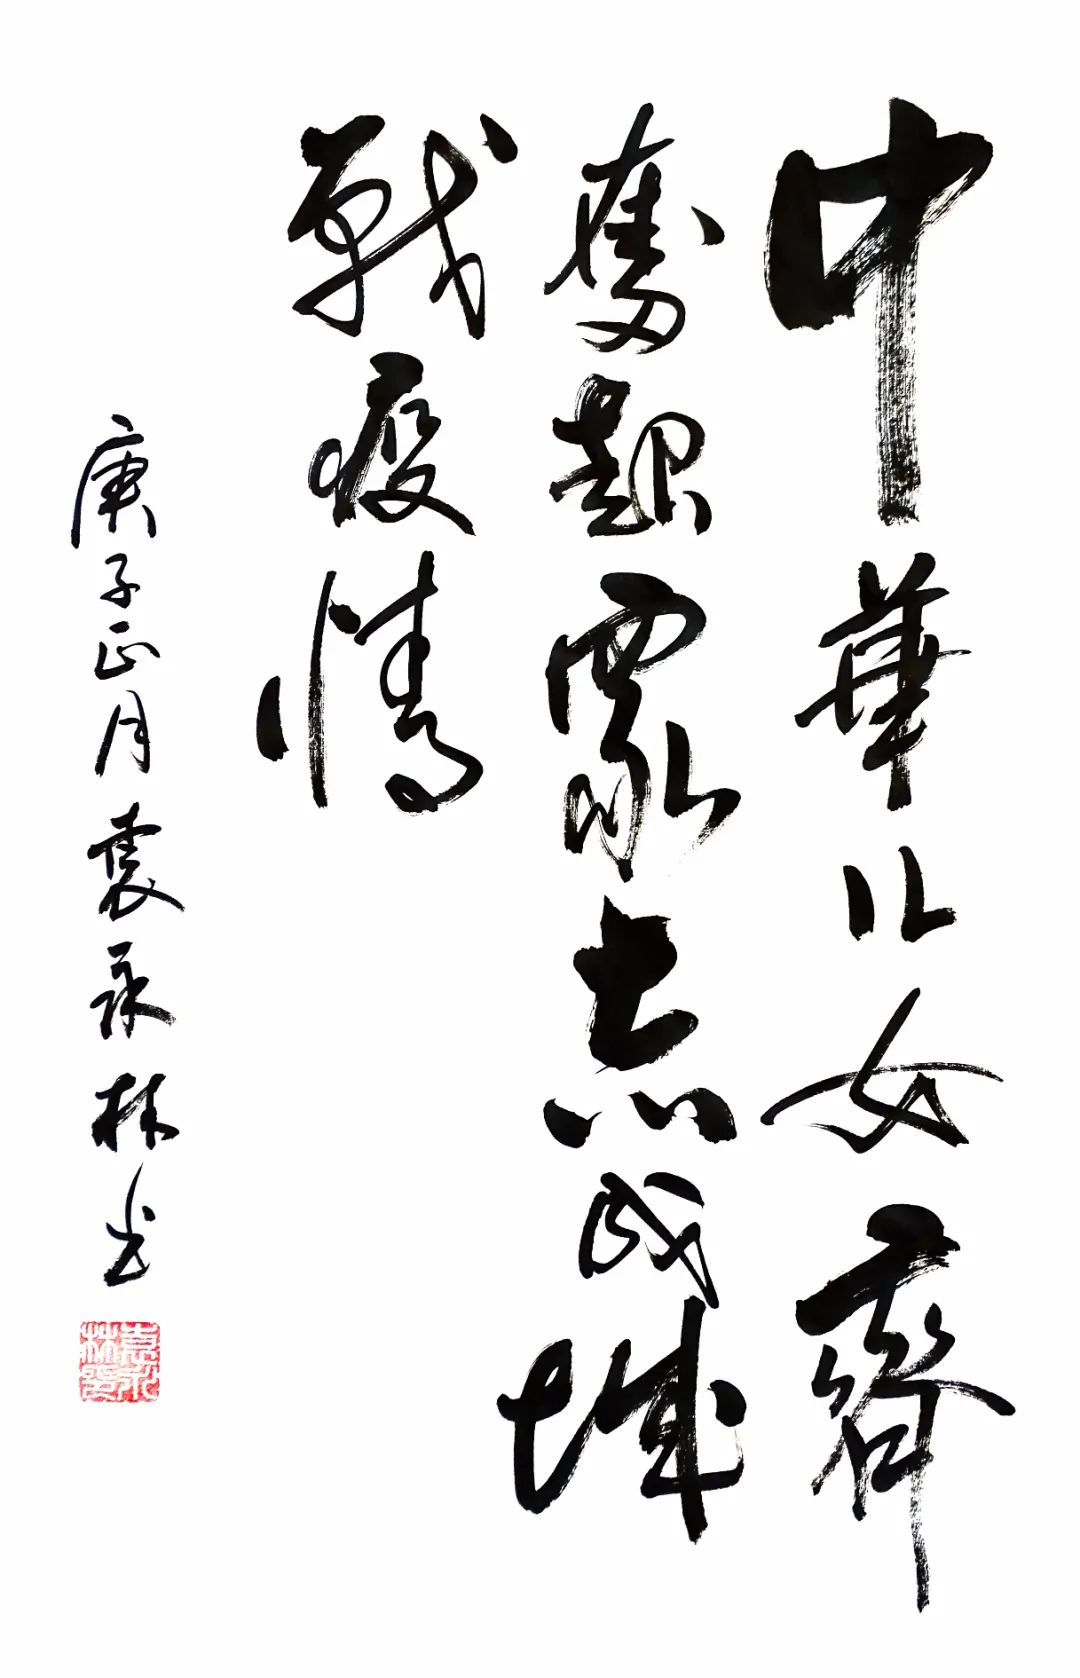 中華儿女齊
奮起眾志成城
戰疫情
庚子正月袁永林书
袁永林印